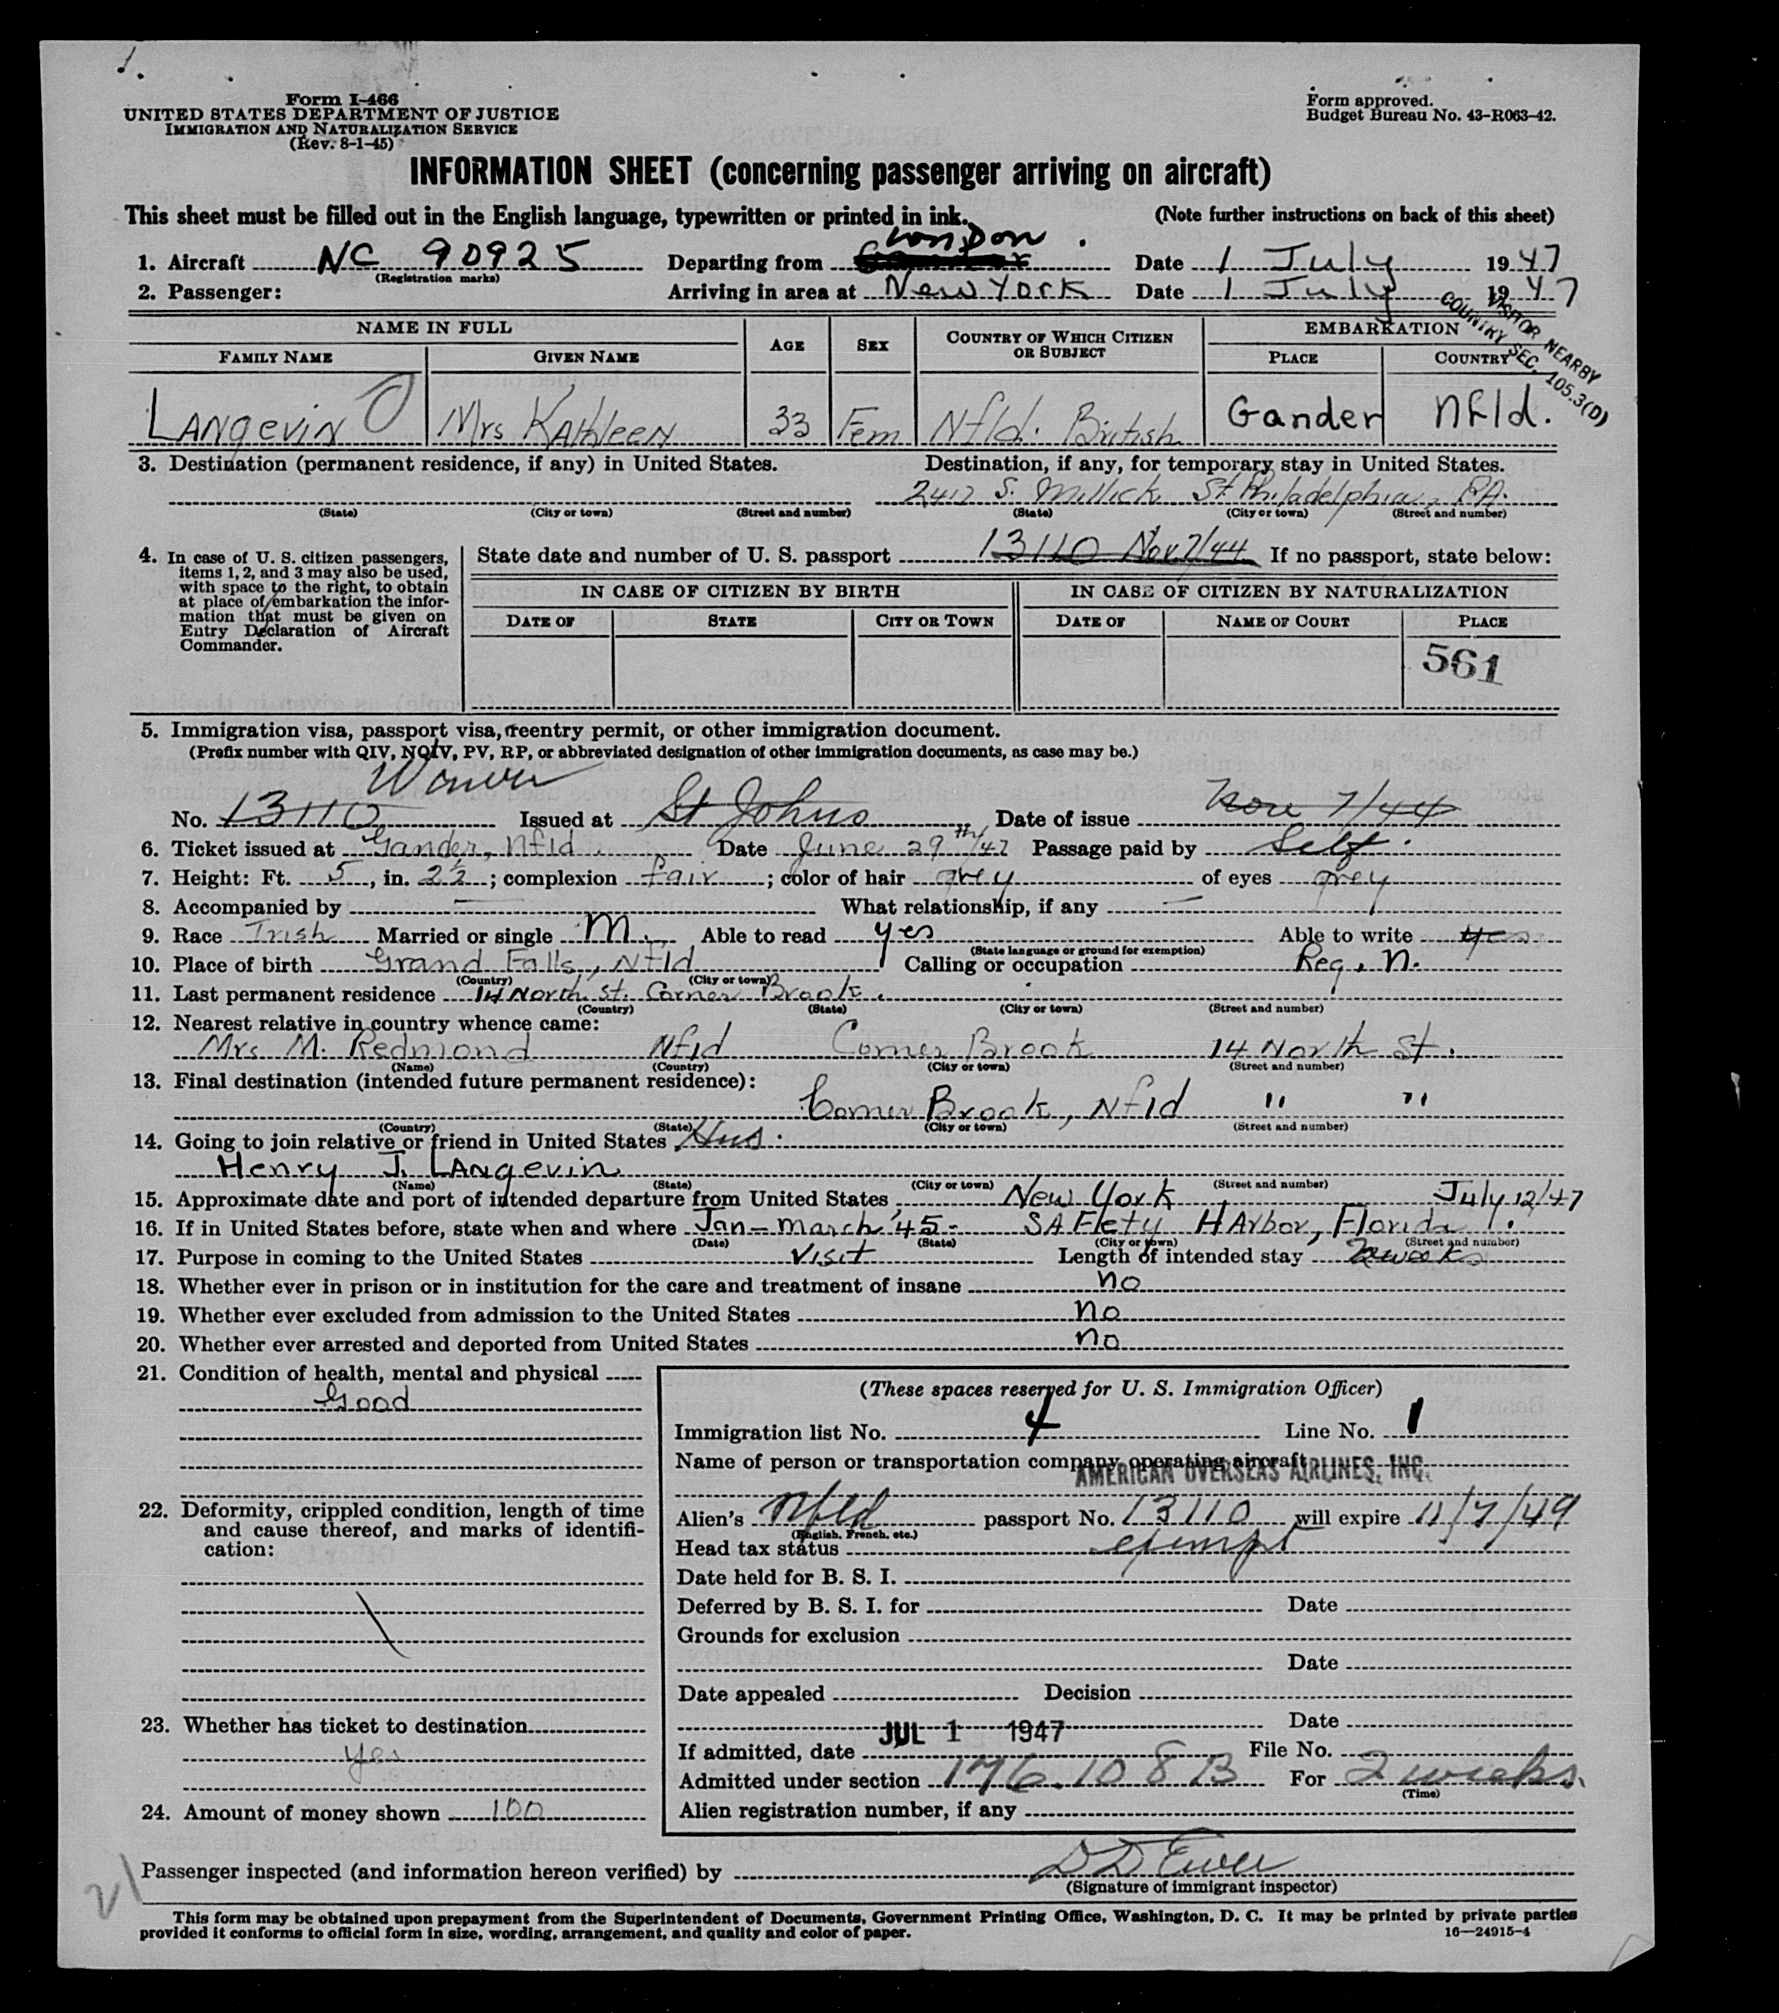 1.
Form I-466
UNITED STATES DEPARTMENT OF JUSTICE
IMMIGRATION AND NATURALIZATION SERVICE
(Rev. 8-1-45)
Form approved.
Budget Bureau No. 43-R063-42.
INFORMATION SHEET (concerning passenger arriving on aircraft)
This sheet must be filled out in the English language, typewritten or printed in ink. (Note further instructions on back of this sheet)
London
1. Aircraft NC 90925 Departing from Date 1 July 1947
(Registration marks)
2. Passenger: Arriving in area at New York Date 1 July 1947
VISITOR NEARBY
COUNTRY SEC. 105.3(D)
NAME IN FULL AGE SEX COUNTRY OF WHICH CITIZEN OR SUBJECT EMBARKATION
FAMILY NAME GIVEN NAME PLACE COUNTRY
LANgeviN Mrs KAthleeN 33 Fem Nfld. British Gander Nfld.
3. Destination (permanent residence, if any) in United States. Destination, if any, for temporary stay in United States.
S. Millick St. Philadelphia, PA.
(State) (City or town) (Street and number) (State) (City or town) (Street and number)
4. In case of U. S. citizen passengers,
items 1, 2, and 3 may also be used,
with space to the right, to obtain
at place of embarkation the infor-
mation that must be given on
Entry Declaration of Aircraft
Commander.
State date and number of U. S. passport 13110 Nov 7/44 If no passport, state below:
IN CASE OF CITIZEN BY BIRTH IN CASE OF CITIZEN BY NATURALIZATION
DATE OF STATE CITY OR TOWN DATE OF NAME OF COURT PLACE
561
5. Immigration visa, passport visa, reentry permit, or other immigration document.
(Prefix number with QIV, NQIV, PV, RP, or abbreviated designation of other immigration documents, as case may be.)
Waiver
No. 13110 Issued at St Johns Date of issue Nov 7/44
6. Ticket issued at Gander, Nfld. Date June 29th/47 Passage paid by Self.
7. Height: Ft. 5, in. 2½; complexion fair; color of hair grey of eyes grey
8. Accompanied by — What relationship, if any —
9. Race Irish Married or single M. Able to read yes Able to write yes
(State language or ground for exemption)
10. Place of birth Grand Falls, Nfld Calling or occupation Reg. N.
(Country) (City or town)
11. Last permanent residence 14 North St. Corner Brook.
(Country) (State) (City or town) (Street and number)
12. Nearest relative in country whence came:
Mrs M. Redmond Nfld Corner Brook 14 North St.
(Name) (Country) (City or town) (Street and number)
13. Final destination (intended future permanent residence):
Corner Brook, Nfld " "
(Country) (State) (City or town) (Street and number)
14. Going to join relative or friend in United States Hus.
Henry J. LANgevin
(Name) (State) (City or town) (Street and number)
15. Approximate date and port of intended departure from United States New York July 12/47
16. If in United States before, state when and where Jan - March '45 - SAFIety HArbor, Florida.
(Date) (State) (City or town) (Street and number)
17. Purpose in coming to the United States Visit Length of intended stay 2 weeks
18. Whether ever in prison or in institution for the care and treatment of insane no
19. Whether ever excluded from admission to the United States no
20. Whether ever arrested and deported from United States no
21. Condition of health, mental and physical
Good
22. Deformity, crippled condition, length of time
and cause thereof, and marks of identifi-
cation:
23. Whether has ticket to destination
yes
24. Amount of money shown 100
(These spaces reserved for U. S. Immigration Officer)
Immigration list No. 4 Line No. 1
Name of person or transportation company operating aircraft
AMERICAN OVERSEAS AIRLINES, INC.
Alien's Nfld passport No. 13110 will expire 11/7/49
(English, French, etc.)
Head tax status exempt
Date held for B. S. I.
Deferred by B. S. I. for Date
Grounds for exclusion
Date
Date appealed Decision
Date
JUL 1 1947
If admitted, date File No.
Admitted under section 176.108B For 2 weeks.
(Time)
Alien registration number, if any
2/
Passenger inspected (and information hereon verified) by
(Signature of immigrant inspector)
This form may be obtained upon prepayment from the Superintendent of Documents, Government Printing Office, Washington, D. C. It may be printed by private parties
provided it conforms to official form in size, wording, arrangement, and quality and color of paper. 16—24915-4